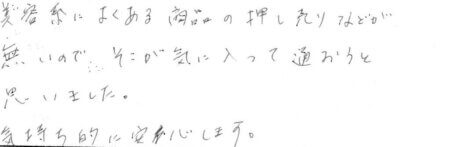 美容系によくある商品の押し売りなどが
無いので、そこが気に入って通おうと
思いました。
気持ち的に安心します。